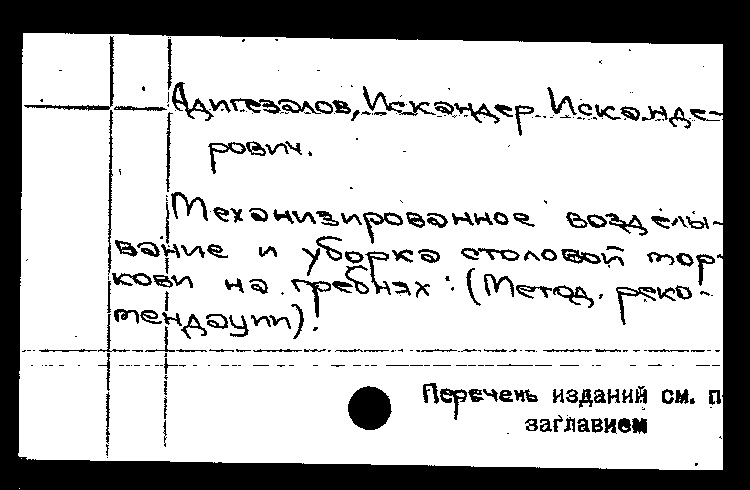 Адигезалов, Искандер Исканде-
рович.
Механизированное возделы-
вание и уборка столовой мор-
кови на гребнях: (Метод. реко-
мендации).
Перечень изданий см. п
заглавием